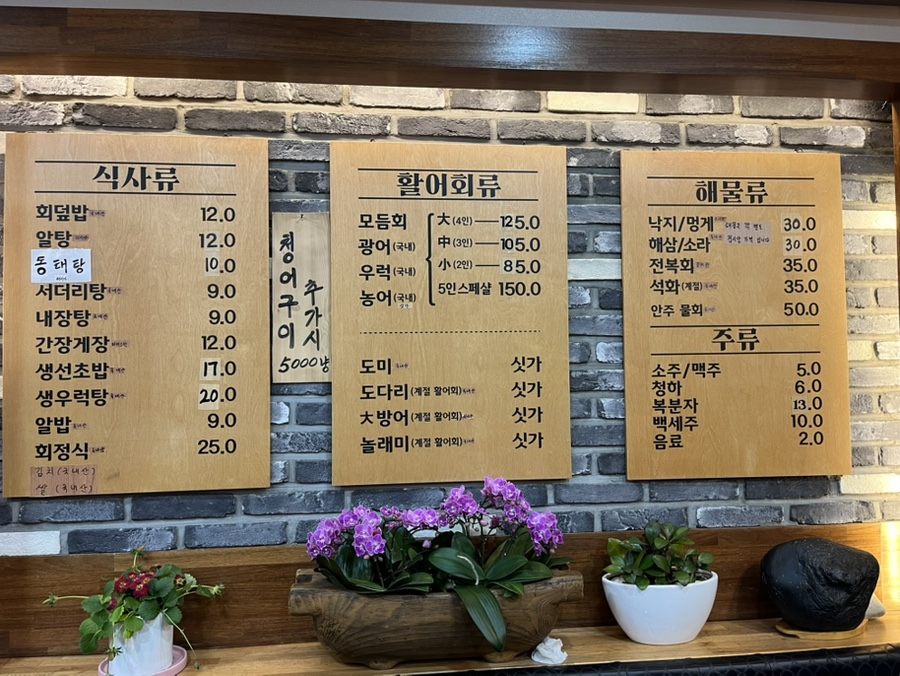 식사류
회덮밥 12.0
알탕 12.0
동태탕 10.0
서더리탕 9.0
내장탕 9.0
간장게장 12.0
생선초밥 17.0
생우럭탕 20.0
알밥 9.0
회정식 25.0
김치 (국내산)
쌀 (국내산)
청어구이
추가시
5000냥
활어회류
모듬회 大 (4인) 125.0
광어 (국내) 中 (3인) 105.0
우럭 (국내) 小 (2인) 85.0
농어 (국내) 5인스페샬 150.0
도미 싯가
도다리 (계절 활어회) 싯가
大방어 (계절 활어회) 싯가
놀래미 (계절 활어회) 싯가
해물류
낙지/멍게 30.0
해삼/소라 30.0
전복회 35.0
석화 (계절) 35.0
안주 물회 50.0
주류
소주/맥주 5.0
청하 6.0
복분자 13.0
백세주 10.0
음료 2.0